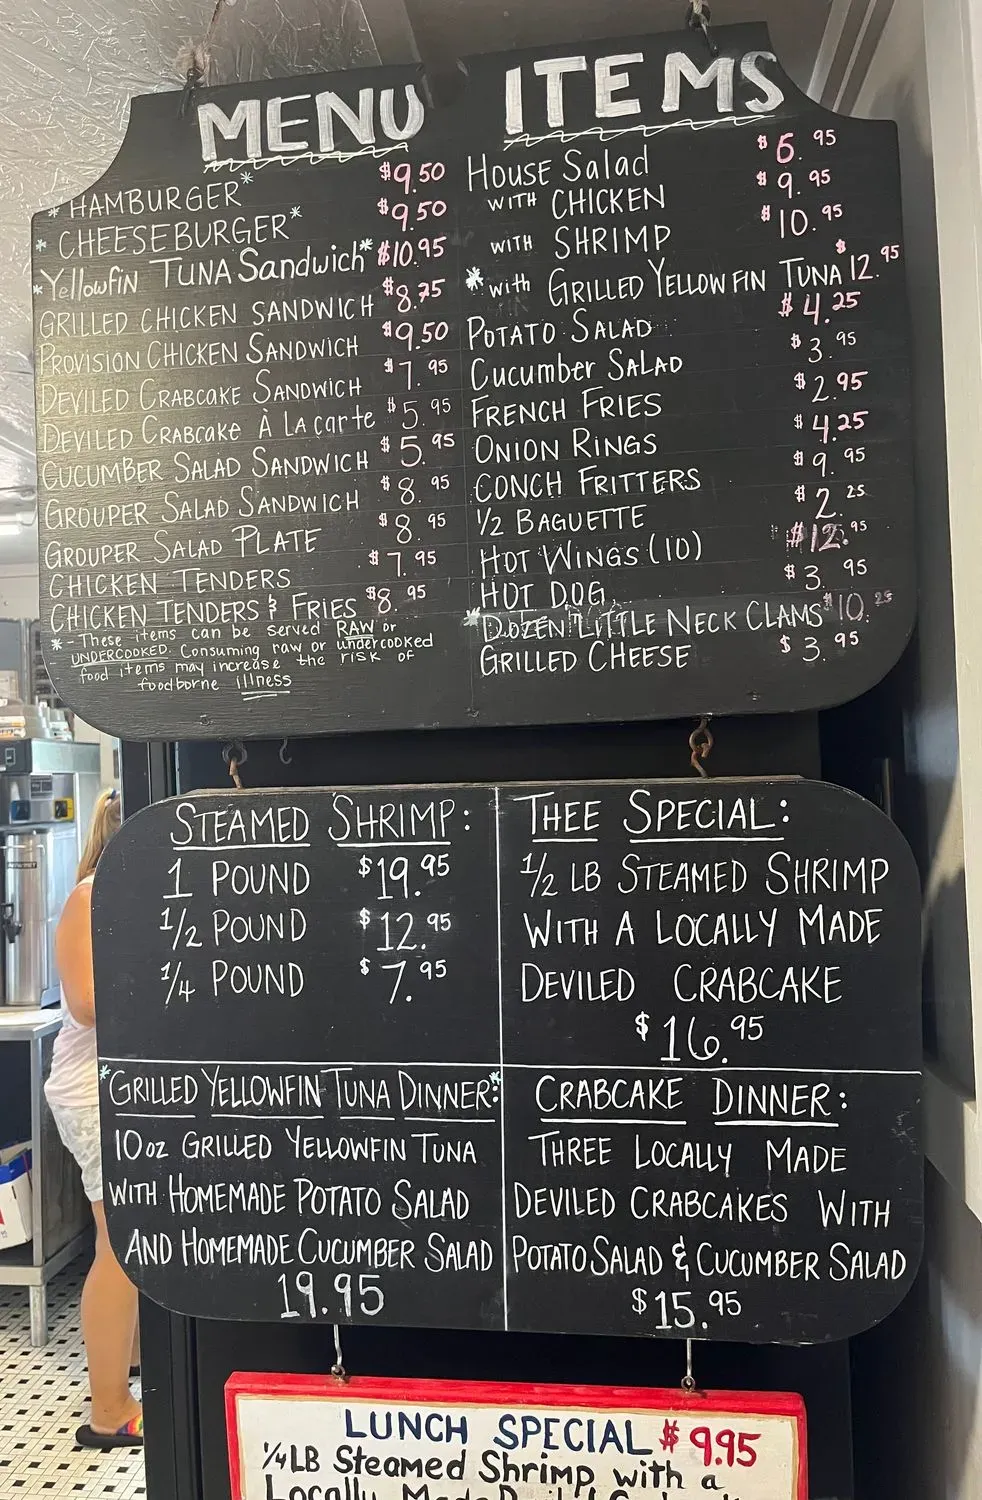 MENU ITEMS
* HAMBURGER* $9.50
* CHEESEBURGER* $9.50
* Yellowfin TUNA Sandwich* $10.95
GRILLED CHICKEN SANDWICH $8.75
PROVISION CHICKEN SANDWICH $9.50
DEVILED CRABCAKE SANDWICH $7.95
DEVILED CRABCAKE À La carte $5.95
CUCUMBER SALAD SANDWICH $5.95
GROUPER SALAD SANDWICH $8.95
GROUPER SALAD PLATE $8.95
CHICKEN TENDERS $7.95
CHICKEN TENDERS & FRIES $8.95
*- These items can be served RAW or
UNDERCOOKED. Consuming raw or undercooked
food items may increase the risk of
foodborne illness
House Salad $6.95
WITH CHICKEN $9.95
WITH SHRIMP $10.95
*with GRILLED YELLOWFIN TUNA $12.95
POTATO SALAD $4.25
Cucumber SALAD $3.95
FRENCH FRIES $2.95
ONION RINGS $4.25
CONCH FRITTERS $9.95
1/2 BAGUETTE $2.25
HOT WINGS (10) $12.95
HOT DOG $3.95
*DOZEN LITTLE NECK CLAMS $10.25
GRILLED CHEESE $3.95
STEAMED SHRIMP:
1 POUND $19.95
1/2 POUND $12.95
1/4 POUND $7.95
THEE SPECIAL:
1/2 LB STEAMED SHRIMP
WITH A LOCALLY MADE
DEVILED CRABCAKE
$16.95
*GRILLED YELLOWFIN TUNA DINNER:*
10oz GRILLED YELLOWFIN TUNA
WITH HOMEMADE POTATO SALAD
AND HOMEMADE CUCUMBER SALAD
19.95
CRABCAKE DINNER:
THREE LOCALLY MADE
DEVILED CRABCAKES WITH
POTATO SALAD & CUCUMBER SALAD
$15.95
LUNCH SPECIAL $9.95
1/4 LB Steamed Shrimp with a
Locally Made